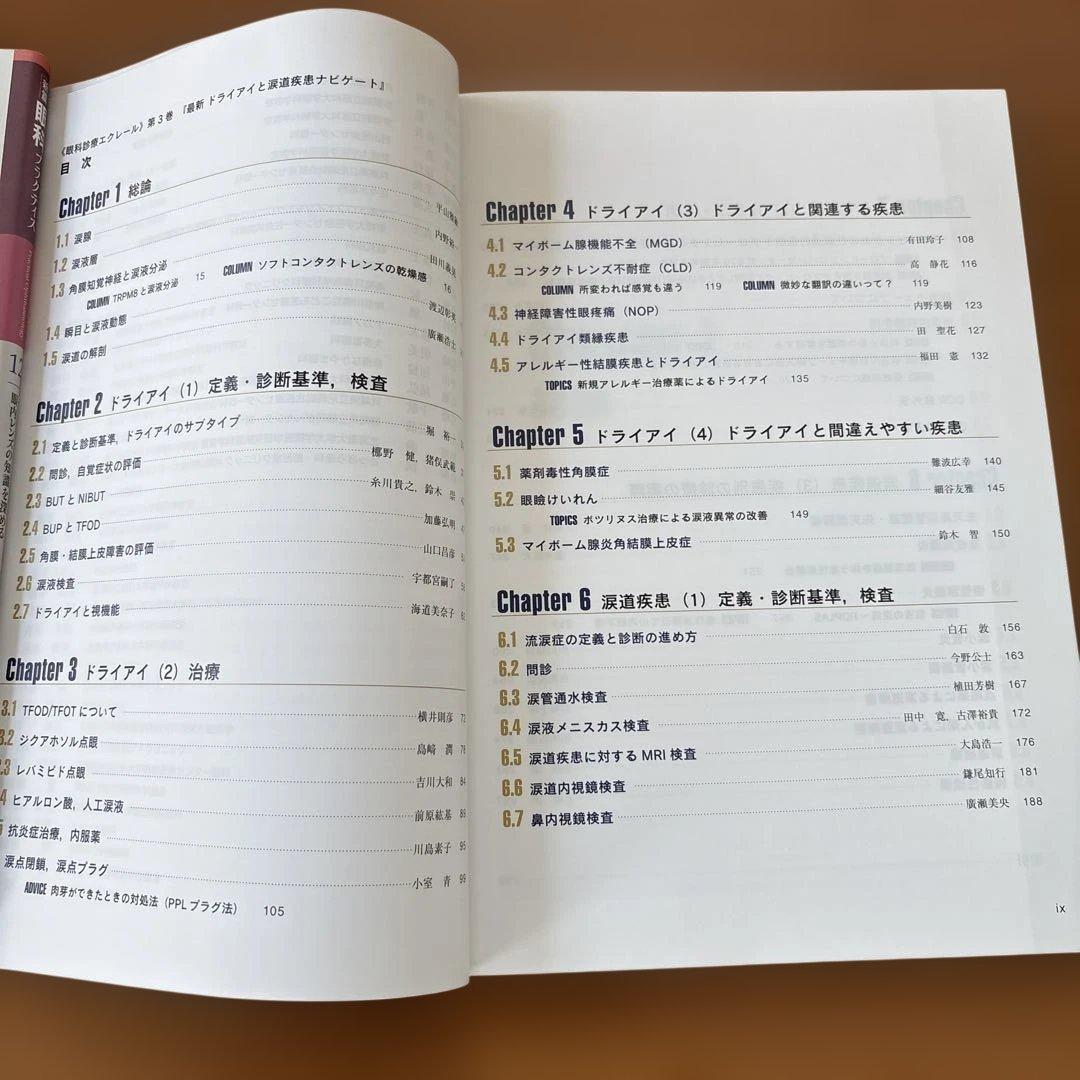 眼科
プラクティス
12
眼内レンズの知識を深める
《眼科診療エクレール》第3巻『最新 ドライアイと涙道疾患ナビゲート』
目 次
Chapter 1 総論
1.1 涙腺
1.2 涙液層
1.3 角膜知覚神経と涙液分泌 田川義晃
COLUMN TRPM8と涙液分泌 15 COLUMN ソフトコンタクトレンズの乾燥感 16
1.4 瞬目と涙液動態 渡辺彰英
1.5 涙道の解剖 廣瀬浩士
Chapter 2 ドライアイ（1）定義・診断基準，検査
2.1 定義と診断基準，ドライアイのサブタイプ 堀 裕一
2.2 問診，自覚症状の評価 梛野 健，猪俣武範
2.3 BUTとNIBUT 糸川貴之，鈴木 崇
2.4 BUPとTFOD 加藤弘明
2.5 角膜・結膜上皮障害の評価 山口昌彦
2.6 涙液検査 宇都宮嗣了
2.7 ドライアイと視機能 海道美奈子
Chapter 3 ドライアイ（2）治療
3.1 TFOD/TFOTについて 横井則彦
3.2 ジクアホソル点眼 島﨑 潤 78
3.3 レバミピド点眼 吉川大和 84
4 ヒアルロン酸，人工涙液 前原紘基 89
5 抗炎症治療，内服薬 川島素子 95
涙点閉鎖，涙点プラグ 小室 青 99
ADVICE 肉芽ができたときの対処法（PPLプラグ法） 105
Chapter 4 ドライアイ（3）ドライアイと関連する疾患
4.1 マイボーム腺機能不全（MGD） 有田玲子 108
4.2 コンタクトレンズ不耐症（CLD） 高 静花 116
COLUMN 所変われば感覚も違う 119 COLUMN 微妙な翻訳の違いって？ 119
4.3 神経障害性眼疼痛（NOP） 内野美樹 123
4.4 ドライアイ類縁疾患 田 聖花 127
4.5 アレルギー性結膜疾患とドライアイ 福田 憲 132
TOPICS 新規アレルギー治療薬によるドライアイ 135
Chapter 5 ドライアイ（4）ドライアイと間違えやすい疾患
5.1 薬剤毒性角膜症 難波広幸 140
5.2 眼瞼けいれん 細谷友雅 145
TOPICS ボツリヌス治療による涙液異常の改善 149
5.3 マイボーム腺炎角結膜上皮症 鈴木 智 150
Chapter 6 涙道疾患（1）定義・診断基準，検査
6.1 流涙症の定義と診断の進め方 白石 敦 156
6.2 問診 今野公士 163
6.3 涙管通水検査 植田芳樹 167
6.4 涙液メニスカス検査 田中 寛，古澤裕貴 172
6.5 涙道疾患に対するMRI検査 大島浩一 176
6.6 涙道内視鏡検査 鎌尾知行 181
6.7 鼻内視鏡検査 廣瀬美央 188
ix